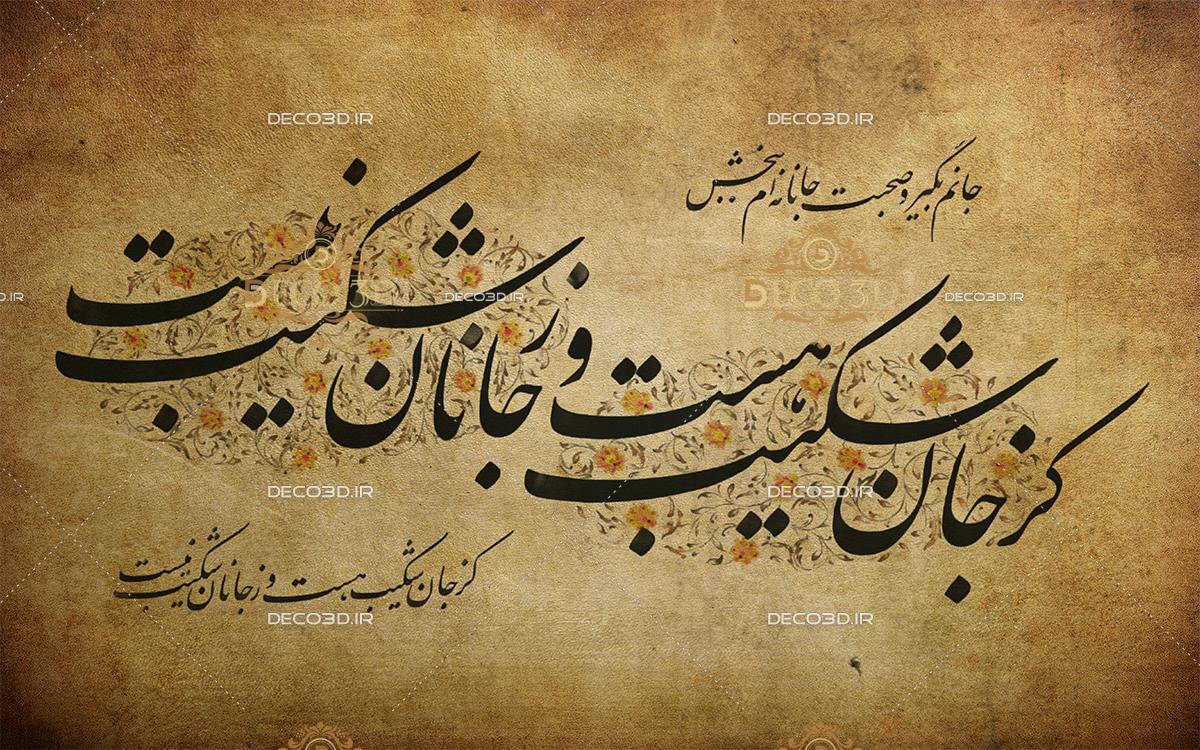 جانم بگیر و صحبت جانانه‌ام ببخش
کز جان شکیب هست و ز جانان شکیب نیست
کز جان شکیب هست و ز جانان شکیب نیست
DECO3D.IR
DECO3D.IR
DECO3D
DECO3D
DECO3D.IR
DECO3D.IR
DECO3D.IR
DECO3D.IR
DECO3D.IR
DECO3D.IR